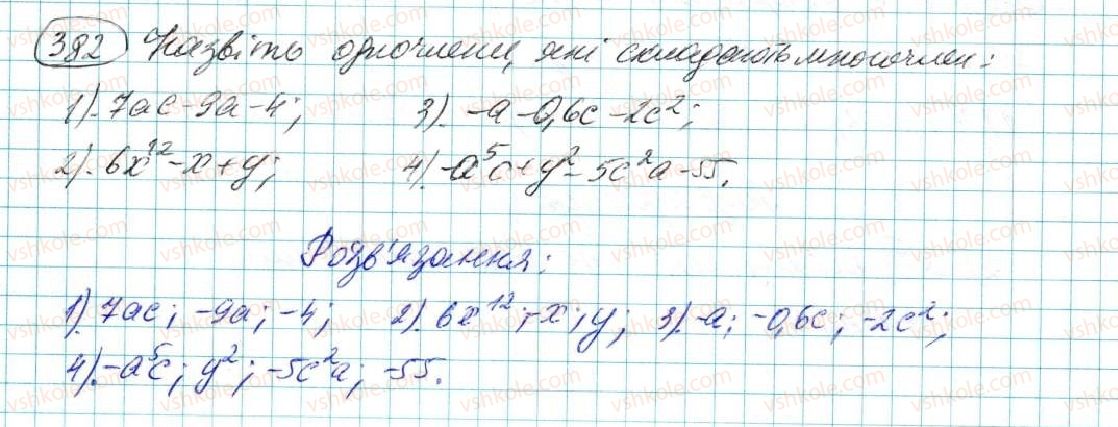 382 Назвіть одночлени, які складають многочлен:
1). 7ac-9a-4; 3). -a-0,6c-2c²;
2). 6x¹²-x+y; 4). -a⁵c+y²-5c²a-55.
Розв'язання:
1). 7ac; -9a; -4; 2). 6x¹²; -x; y; 3). -a; -0,6c; -2c²;
4). -a⁵c; y²; -5c²a; -55.